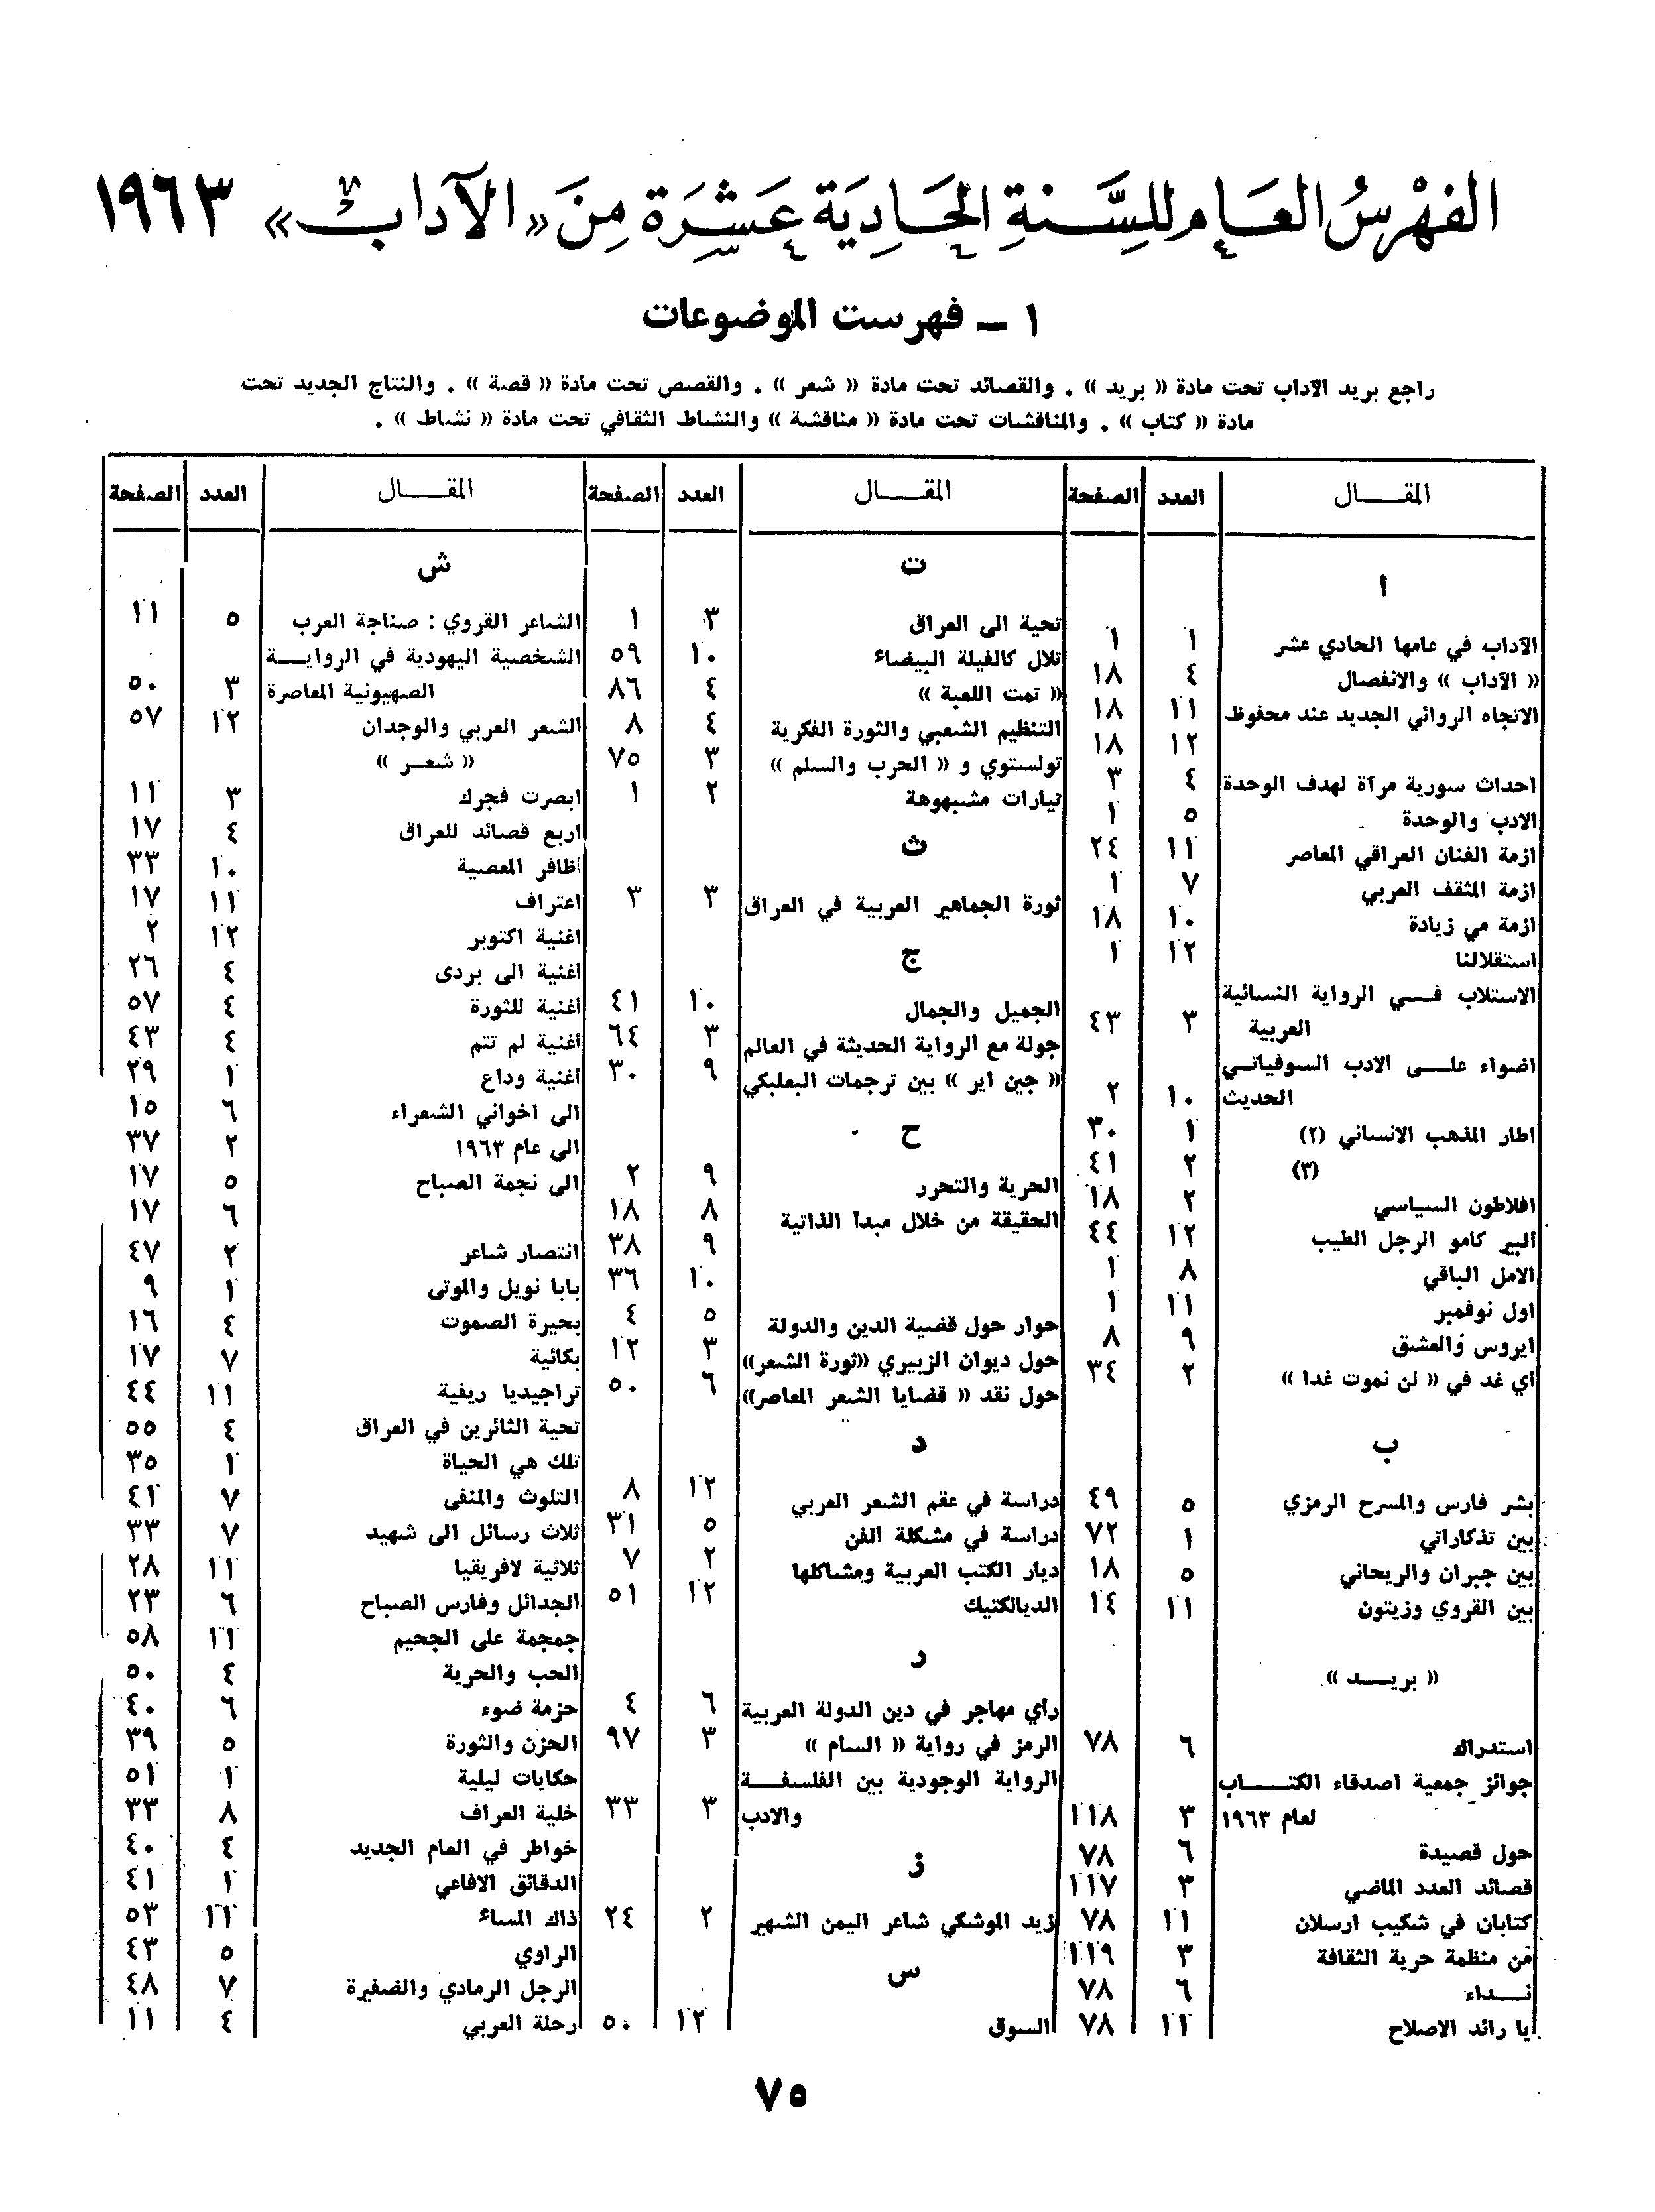 الفهرس العام للسنة الحادية عشرة من «الآداب» ١٩٦٣
١ ــ فهرست الموضوعات
راجع بريد الآداب تحت مادة « بريد » . والقصائد تحت مادة « شعر » . والقصص تحت مادة « قصة » . والنتاج الجديد تحت
مادة « كتاب » . والمناقشات تحت مادة « مناقشة » والنشاط الثقافي تحت مادة « نشاط » .
المقـــال العدد الصفحة
ا
الآداب في عامها الحادي عشر ١ ١
« الآداب » والانفصال ٤ ١٨
الاتجاه الروائي الجديد عند محفوظ ١١ ١٨
١٢ ١٨
احداث سورية مرآة لهدف الوحدة ٤ ٣
الادب والوحدة ٥ ١
ازمة الفنان العراقي المعاصر ١١ ٢٤
ازمة المثقف العربي ٧ ١
ازمة مي زيادة ١٠ ١٨
استقلالنا ١٢ ١
الاستلاب فــي الرواية النسائية
العربية ٣ ٤٣
اضواء علــى الادب السوفياتـي
الحديث ١٠ ٢
اطار المذهب الانساني (٢) ١ ٣٠
(٣) ٢ ٤١
افلاطون السياسي ٢ ١٨
ألبير كامو الرجل الطيب ١٢ ٤٤
الامل الباقي ٨ ١
اول نوفمبر ١١ ١
ايروس والعشق ٩ ٨
أي غد في « لن نموت غدا » ٢ ٣٤
ب
بشر فارس والمسرح الرمزي ٥ ٤٩
بين تذكاراتي ١ ٧٢
بين جبران والريحاني ٥ ١٨
بين القروي وزيتون ١١ ١٤
« بريـــد »
استدراك ٦ ٧٨
جوائز جمعية اصدقاء الكتـــاب
لعام ١٩٦٣ ٣ ١١٨
حول قصيدة ٦ ٧٨
قصائد العدد الماضي ٣ ١١٧
كتابان في شكيب ارسلان ١١ ٧٨
من منظمة حرية الثقافة ٣ ١١٩
نـــداء ٦ ٧٨
يا رائد الاصلاح ١١ ٧٨
المقـــال العدد الصفحة
ت
تحية الى العراق ٣ ١
تلال كالفيلة البيضاء ١٠ ٥٩
« تمت اللعبة » ٤ ٨٦
التنظيم الشعبي والثورة الفكرية ٤ ٨
تولستوي و « الحرب والسلم » ٣ ٧٥
تيارات مشبهوهة ٢ ١
ث
ثورة الجماهير العربية في العراق ٣ ٣
ج
الجميل والجمال ١٠ ٤١
جولة مع الرواية الحديثة في العالم ٣ ٦٤
« جين اير » بين ترجمات البعلبكي ٩ ٣٠
ح
الحرية والتحرر ٩ ٢
الحقيقة من خلال مبدأ الذاتية ٨ ١٨
٩ ٣٨
١٠ ٣٦
حوار حول قضية الدين والدولة ٥ ٤
حول ديوان الزبيري «ثورة الشعر» ٣ ١٢
حول نقد « قضايا الشعر المعاصر» ٦ ٥٠
د
دراسة في عقم الشعر العربي ١٢ ٨
دراسة في مشكلة الفن ٥ ٣١
ديار الكتب العربية ومشاكلها ٢ ٧
الديالكتيك ١٢ ٥١
ر
رأي مهاجر في دين الدولة العربية ٦ ٤
الرمز في رواية « السام » ٣ ٩٧
الرواية الوجودية بين الفلسفـــة
والادب ٣ ٣٣
ز
زيد الموشكي شاعر اليمن الشهير ٢ ٢٤
س
السوق ١٢ ٥٠
المقـــال العدد الصفحة
ش
الشاعر القروي : صناجة العرب ٥ ١١
الشخصية اليهودية في الروايـــة
الصهيونية المعاصرة ٣ ٥٠
الشعر العربي والوجدان ١٢ ٥٧
« شعــر »
ابصرت فجرك ٣ ١١
اربع قصائد للعراق ٤ ١٧
أظافر المعصية ١٠ ٣٣
اعتراف ١١ ١٧
اغنية اكتوبر ١٢ ٢
اغنية الى بردى ٤ ٢٦
أغنية للثورة ٤ ٥٧
اغنية لم تتم ٤ ٤٣
أغنية وداع ١ ٢٩
الى اخواني الشعراء ٦ ١٥
الى عام ١٩٦٣ ٢ ٣٧
الى نجمة الصباح ٥ ١٧
٦ ١٧
انتصار شاعر ٢ ٤٧
بابا نويل والموتى ١ ٩
بحيرة الصموت ٤ ١٦
بكائية ٧ ١٧
تراجيديا ريفية ١١ ٤٤
تحية الثائرين في العراق ٤ ٥٥
تلك هي الحياة ١ ٣٥
التلوث والمنفى ٧ ٤١
ثلاث رسائل الى شهيد ٧ ٣٣
ثلاثية لافريقيا ١١ ٢٨
الجدائل وفارس الصباح ٦ ٢٣
جمجمة على الجحيم ١١ ٥٨
الحب والحرية ٤ ٥٠
حزمة ضوء ٦ ٤٠
الحزن والثورة ٥ ٣٩
حكايات ليلية ١ ٥١
خلية العراف ٨ ٣٣
خواطر في العام الجديد ٤ ٤٠
الدقائق الافاعي ١ ٤١
ذاك المساء ١١ ٥٣
الراوي ٥ ٤٣
الرجل الرمادي والضفيرة ٧ ٤٨
رحلة العربي ٤ ١١
٧٥